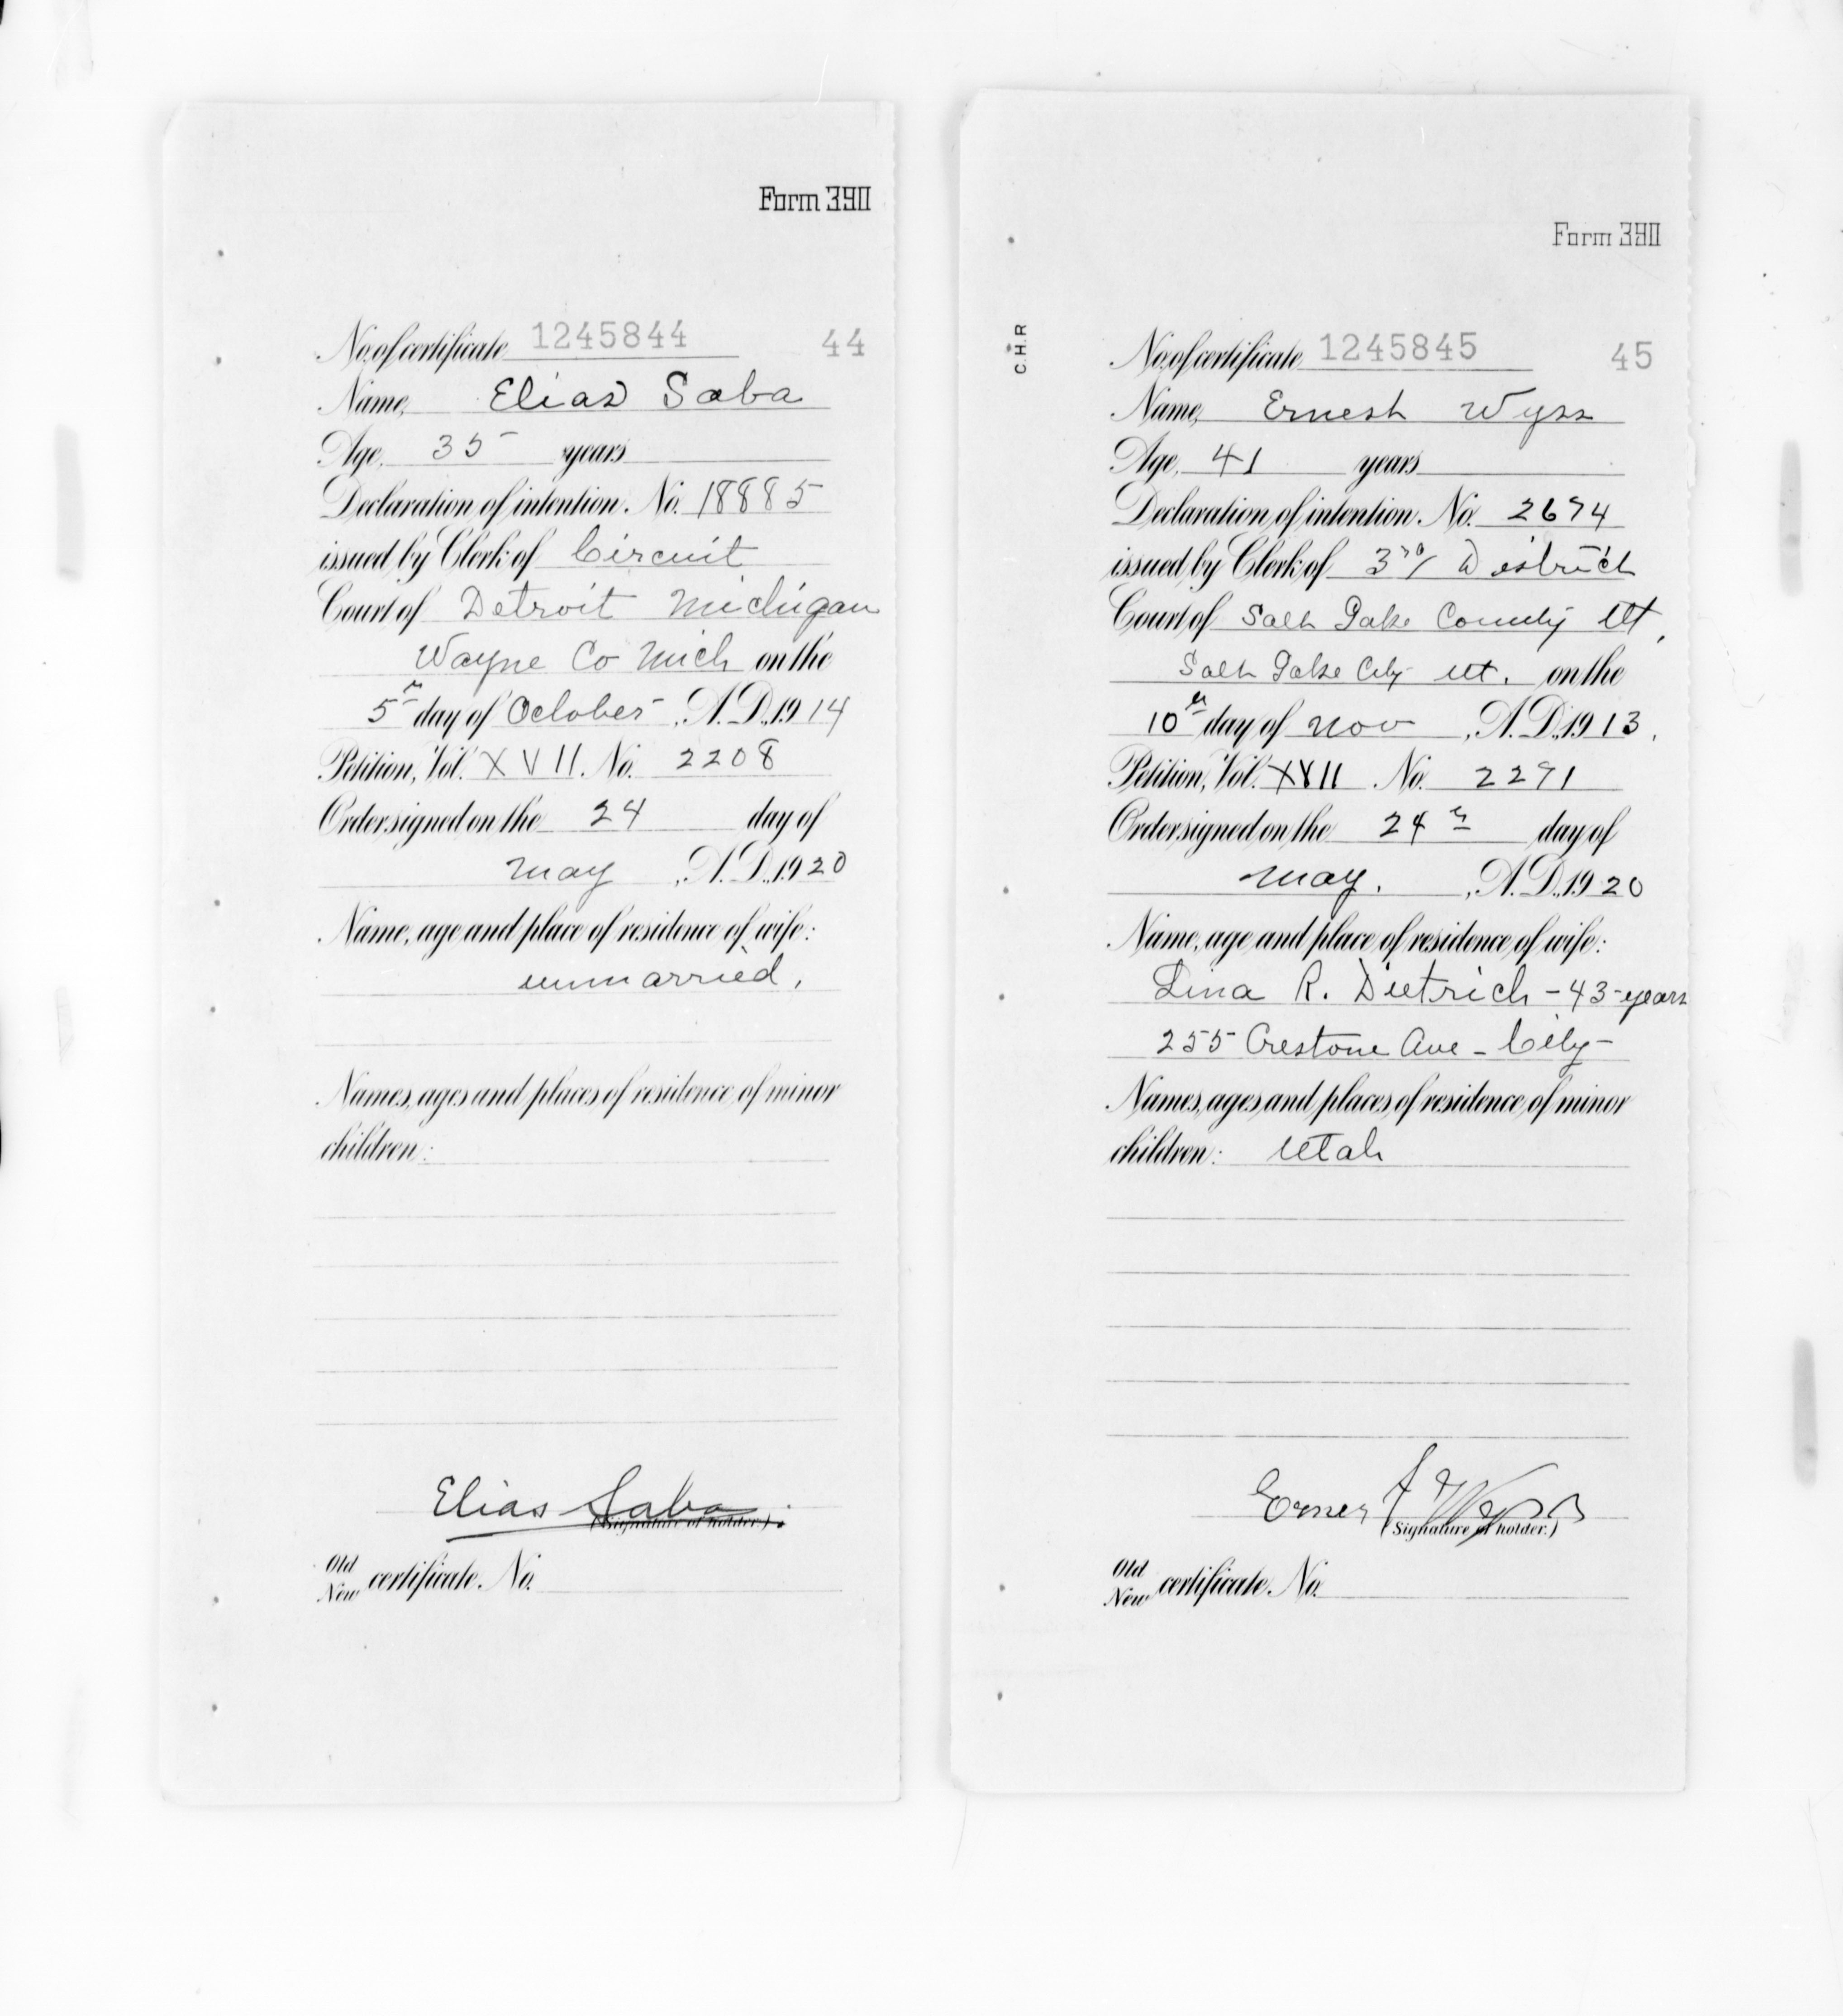 Form 390
No. of certificate 1245844 44
Name, Elias Saba
Age, 35 years
Declaration of intention, No. 18885
issued by Clerk of Circuit
Court of Detroit Michigan
Wayne Co Mich on the
5th day of October, A.D., 1914
Petition, Vol. XVII. No. 2208
Order signed on the 24 day of
May, A.D., 1920
Name, age and place of residence of wife:
unmarried,
Names, ages and places of residence of minor
children:
Elias Saba
(Signature of holder.)
Old
New certificate No.
Form 390
C.H.R
No. of certificate 1245845 45
Name, Ernest Wyss
Age, 41 years
Declaration of intention, No. 2674
issued by Clerk of 3rd District
Court of Salt Lake County Ut,
Salt Lake City Ut. on the
10th day of Nov, A.D., 1913.
Petition, Vol. XVII No. 2291
Order signed on the 24th day of
May., A.D., 1920
Name, age and place of residence of wife:
Lina R. Dietrich - 43 - years
255 Crestone Ave - City -
Names, ages and places of residence of minor
children: Utah
Ernest Wyss
(Signature of holder.)
Old
New certificate No.